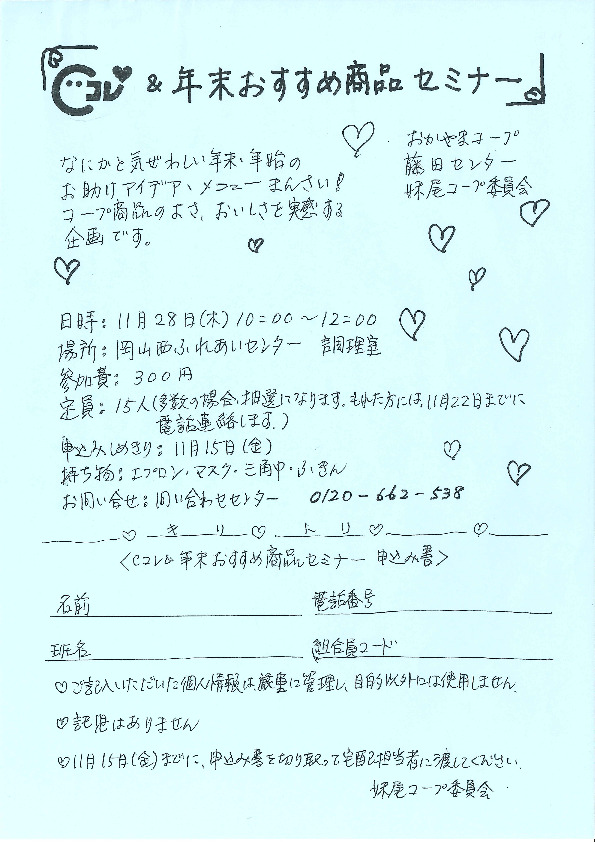 Cコレ & 年末おすすめ商品セミナー
おかやまコープ
藤田センター
妹尾コープ委員会
なにかと気ぜわしい年末・年始の
お助けアイデア、メニューまんさい!
コープ商品のよさ、おいしさを実感する
企画です。
日時:11月28日(木)10:00~12:00
場所:岡山西ふれあいセンター 調理室
参加費:300円
定員:15人(多数の場合、抽選になります。もれた方には、11月22日までに
電話連絡します。)
申込みしめきり:11月15日(金)
持ち物:エプロン・マスク・三角巾・ふきん
お問い合せ:問い合わせセンター 0120-662-538
きりトリ
<Cコレ&年末おすすめ商品セミナー 申込み書>
名前 電話番号
班名 組合員コード
♡ご記入いただいた個人情報は厳重に管理し、目的以外には使用しません。
♡託児はありません
♡11月15日(金)までに、申込み書を切り取って宅配担当者に渡してください。
妹尾コープ委員会